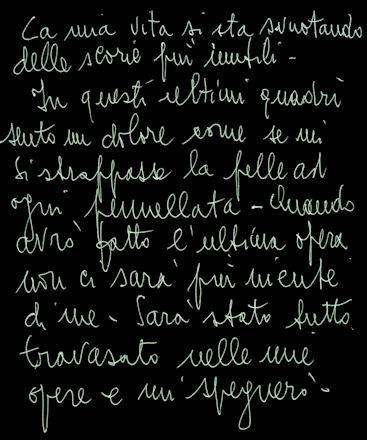 La mia vita si sta svuotando
delle scorie più inutili -
In questi ultimi quadri
sento un dolore come se mi
si strappasse la pelle ad
ogni pennellata - Quando
avrò fatto l'ultima opera
non ci sarà più niente
di me - Sarà stato tutto
travasato nelle mie
opere e mi spegnerò -